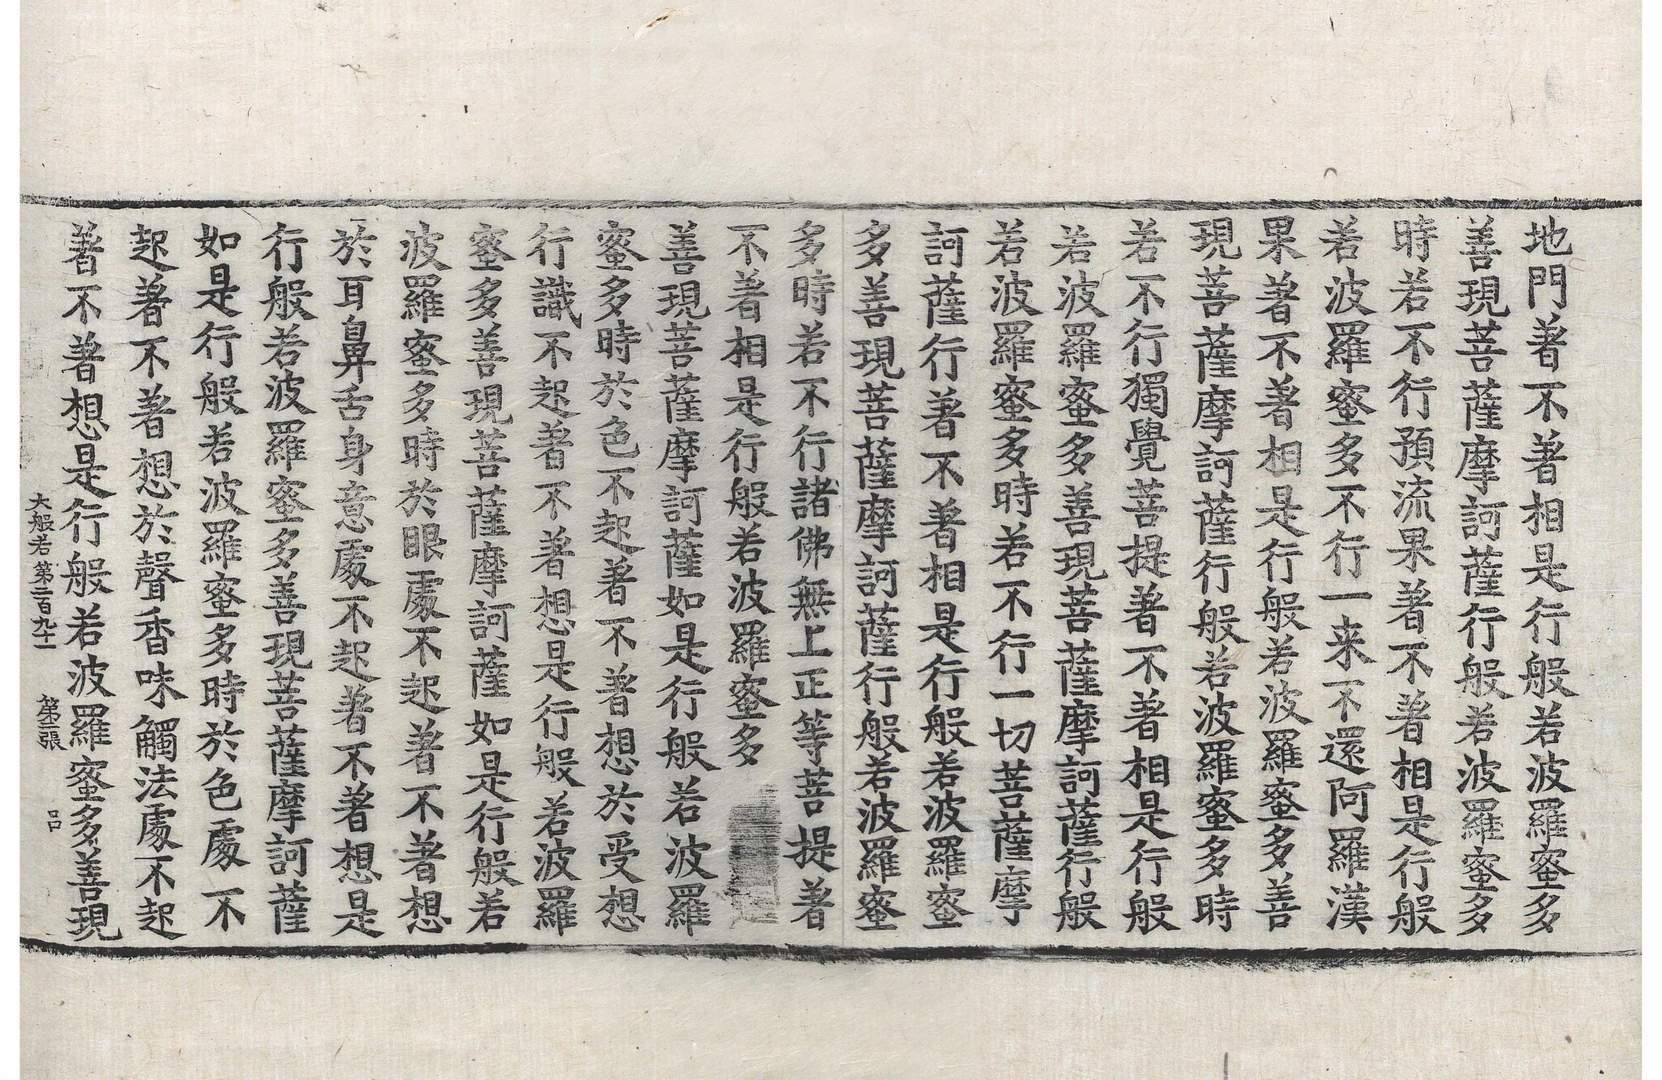 地門著不著相是行般若波羅蜜多
善現菩薩摩訶薩行般若波羅蜜多
時若不行預流果著不著相是行般
若波羅蜜多不行一来不還阿羅漢
果著不著相是行般若波羅蜜多善
現菩薩摩訶薩行般若波羅蜜多時
若不行獨覺菩提著不著相是行般
若波羅蜜多善現菩薩摩訶薩行般
若波羅蜜多時若不行一切菩薩摩
訶薩行著不著相是行般若波羅蜜
多善現菩薩摩訶薩行般若波羅蜜
多時若不行諸佛無上正等菩提著
不著相是行般若波羅蜜多
善現菩薩摩訶薩如是行般若波羅
蜜多時於色不起著不著想於受想
行識不起著不著想是行般若波羅
蜜多善現菩薩摩訶薩如是行般若
波羅蜜多時於眼處不起著不著想
於耳鼻舌身意處不起著不著想是
行般若波羅蜜多善現菩薩摩訶薩
如是行般若波羅蜜多時於色處不
起著不著想於聲香味觸法處不起
著不著想是行般若波羅蜜多善現
大般若第二百九十一 第三張 呂